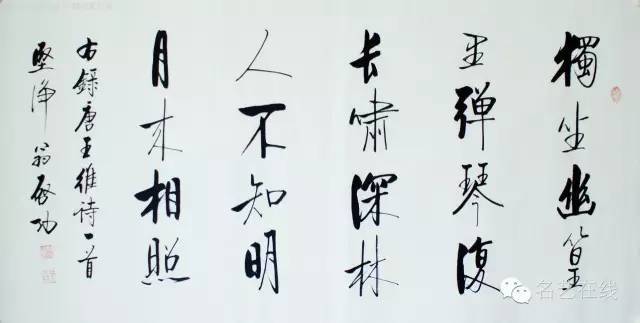 獨坐幽篁
里彈琴復
長嘯深林
人不知明
月來相照
右錄唐王維詩一首
堅净翁启功
名艺在线